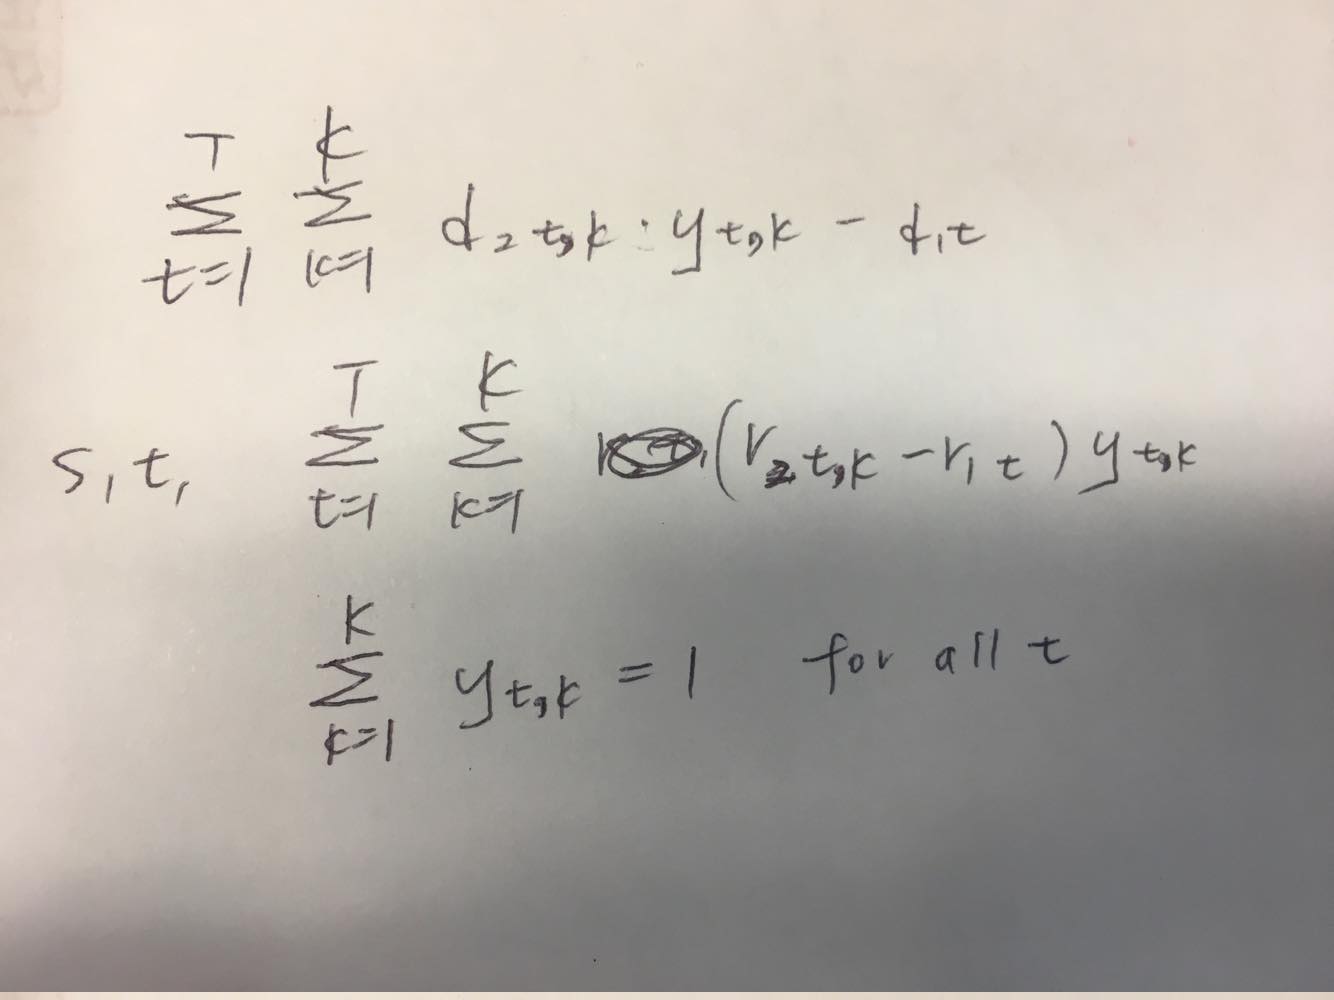 \sum_{t=1}^{T} \sum_{k=1}^{K} d_{2t,k} \cdot y_{t,k} - d_{1t}
s.t. \sum_{t=1}^{T} \sum_{k=1}^{K} (r_{2t,k} - r_{1t}) y_{t,k}
\sum_{k=1}^{K} y_{t,k} = 1 for all t